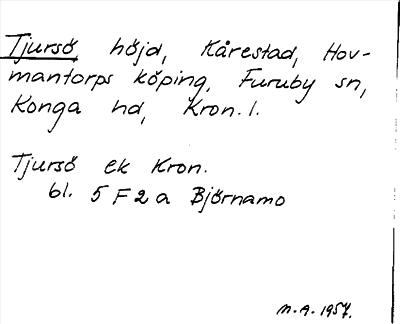 Tjursö, höjd, Kårestad, Hov-
mantorps köping, Furuby sn,
Konga hd, Kron. l.
Tjursö ek Kron.
bl. 5 F 2 a Björnamo
M.A. 1957.